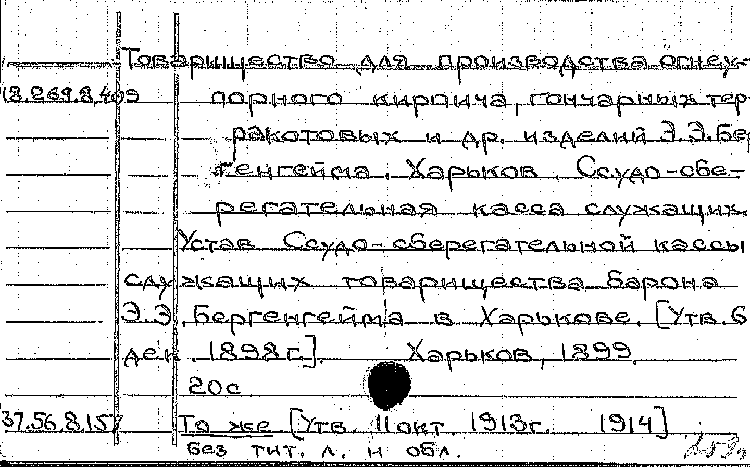 Товарищество для производства огнеу-
18.269.8.409 порного кирпича, гончарных тер-
ракотовых и др. изделий Э.Э.Бер
генгейма. Харьков. Ссудо-сбе-
регательная касса служащих.
Устав Ссудо-сберегательной кассы
служащих товарищества барона
Э.Э. Бергенгейма в Харькове. [Утв. 6
дек. 1898г.]. Харьков, 1899.
20с
37.56.8.157 То же [Утв. 11 окт. 1913г. 1914]
без тит. л. и обл.